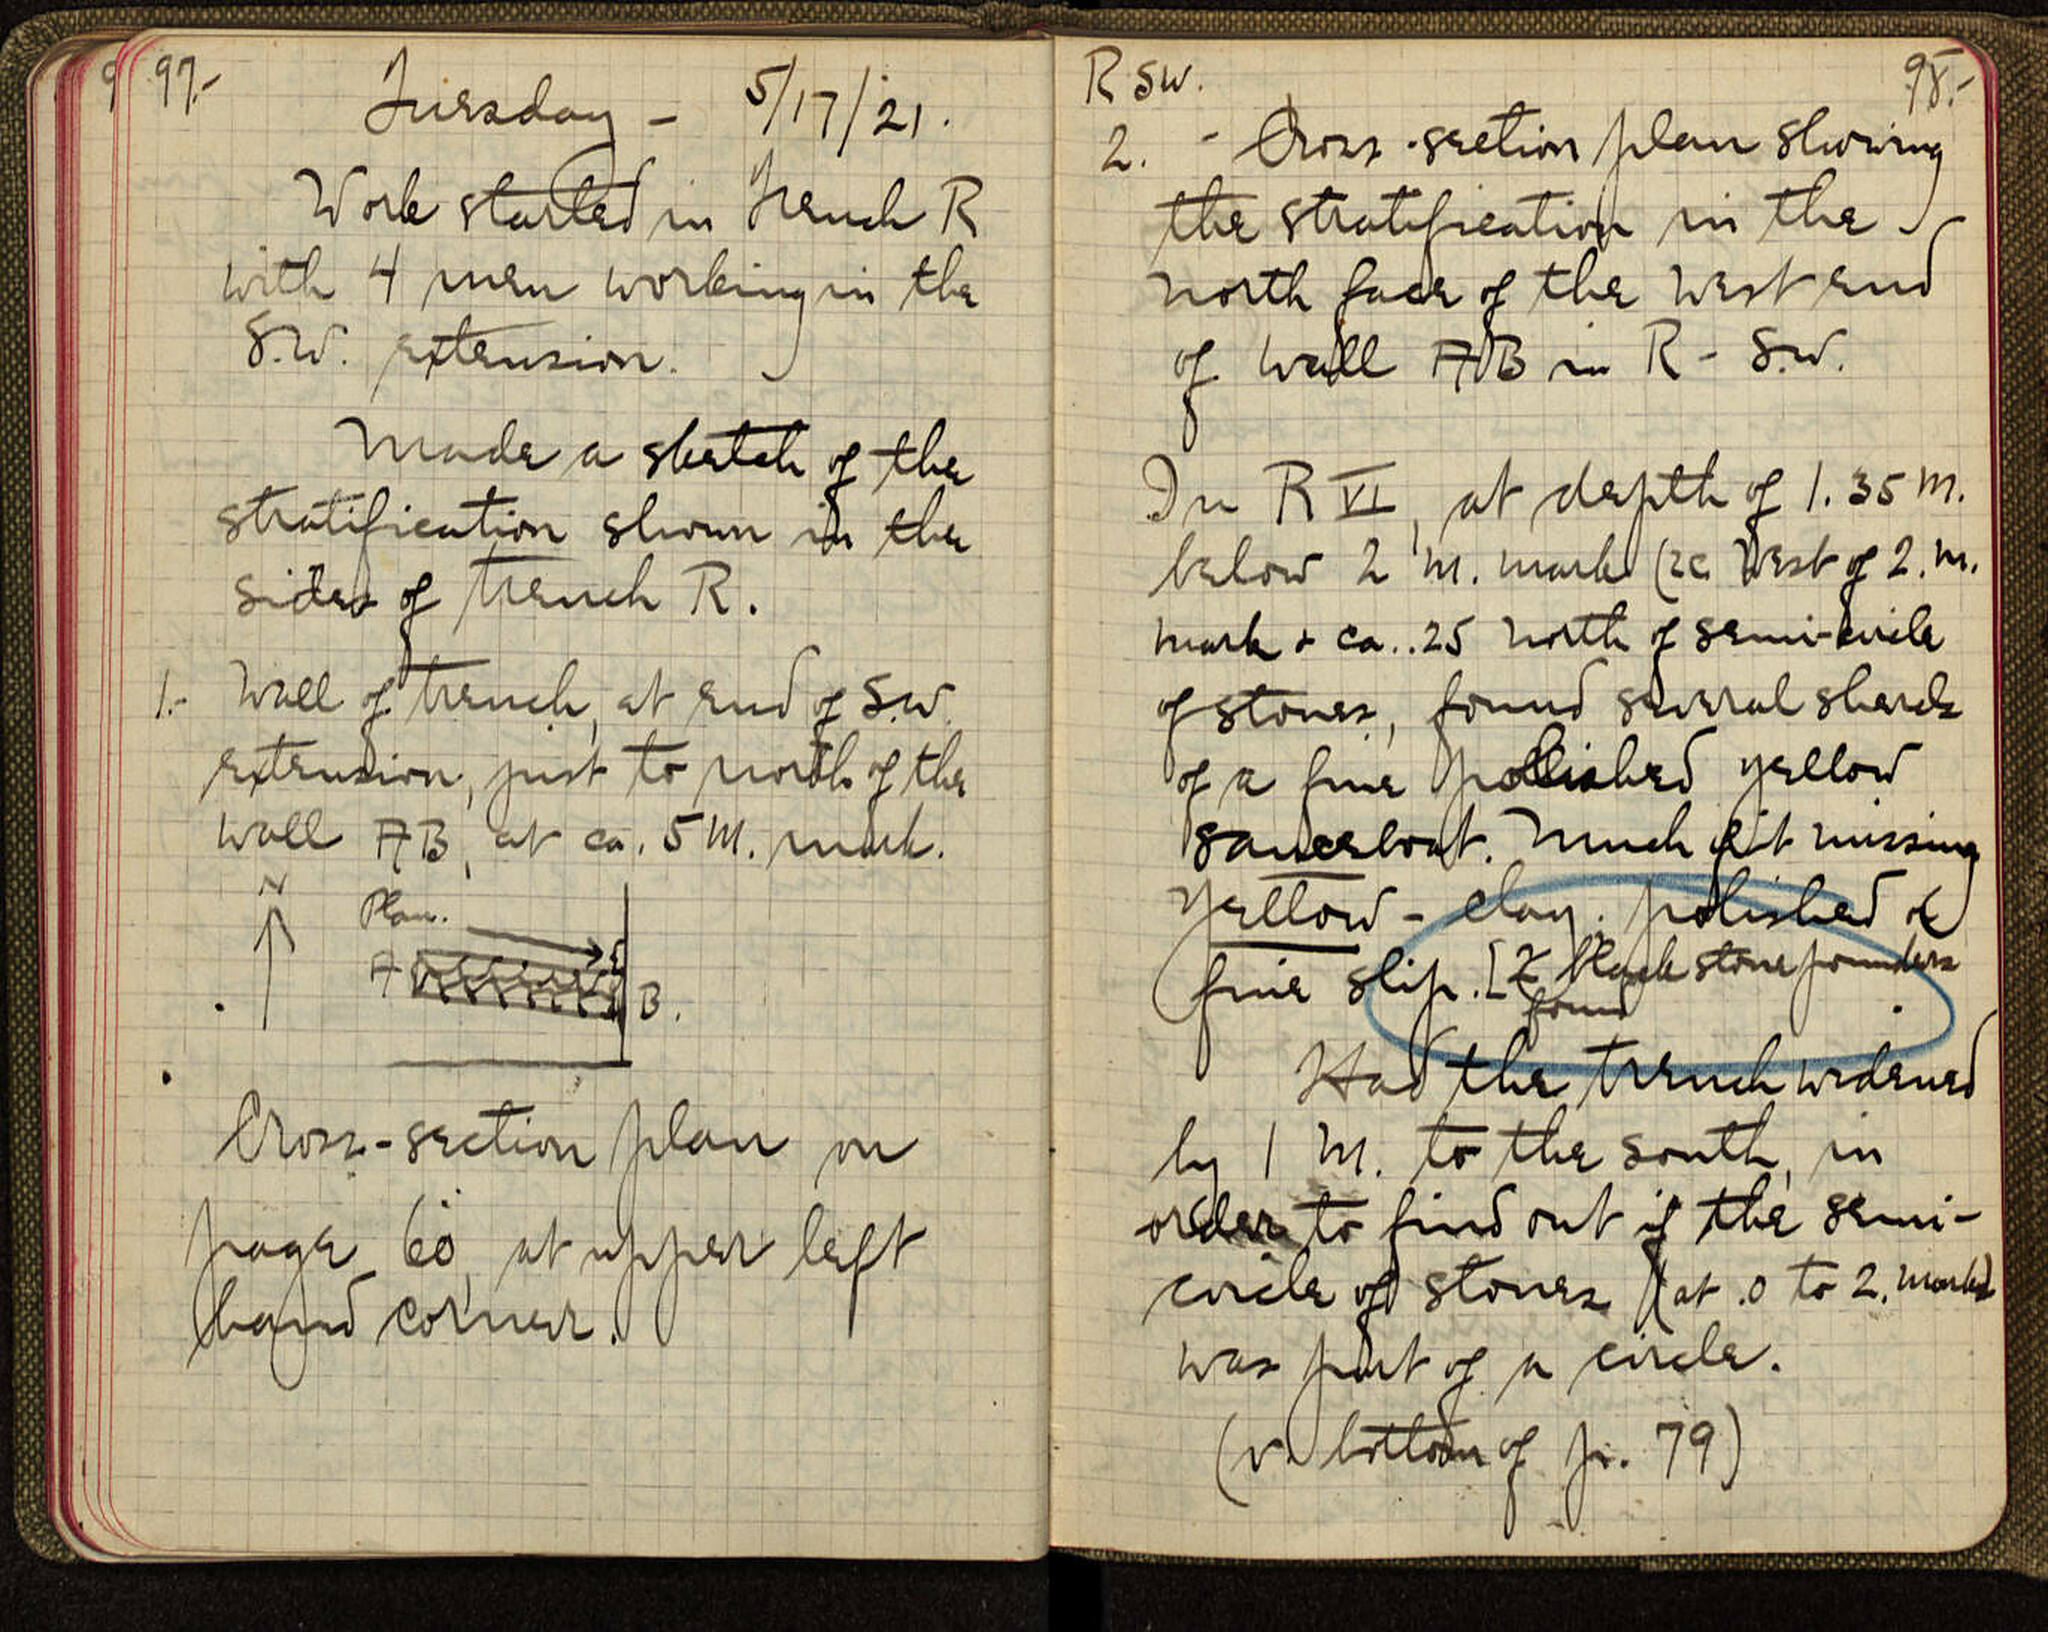 97.-
Tuesday - 5/17/21.
Work started in trench R
with 4 men working in the
S.W. extension.
Made a sketch of the
stratification shown in the
sides of trench R.
1.- Wall of trench, at end of S.W.
extension, just to north of the
wall AB, at ca. 5 M. mark.
N
Plan.
A
B.
Cross-section plan on
page 60, at upper left
hand corner.
R SW.
98.-
2. - Cross-section plan showing
the stratification in the
north face of the west end
of wall AB in R - S.W.
In R VI, at depth of 1.35 M.
below 2 M. mark West of 2. M.
mark + ca. .25 north of semi-circle
of stones, found several sherds
of a fine polished yellow
sauceboat. Much of it missing
Yellow - clay. polished
fine slip. [2 black stone pounders
found
Had the trench widened
by 1 M. to the south, in
order to find out if the semi-
circle of stones (at .0 to 2. marks)
was part of a circle.
(v. bottom of p. 79)